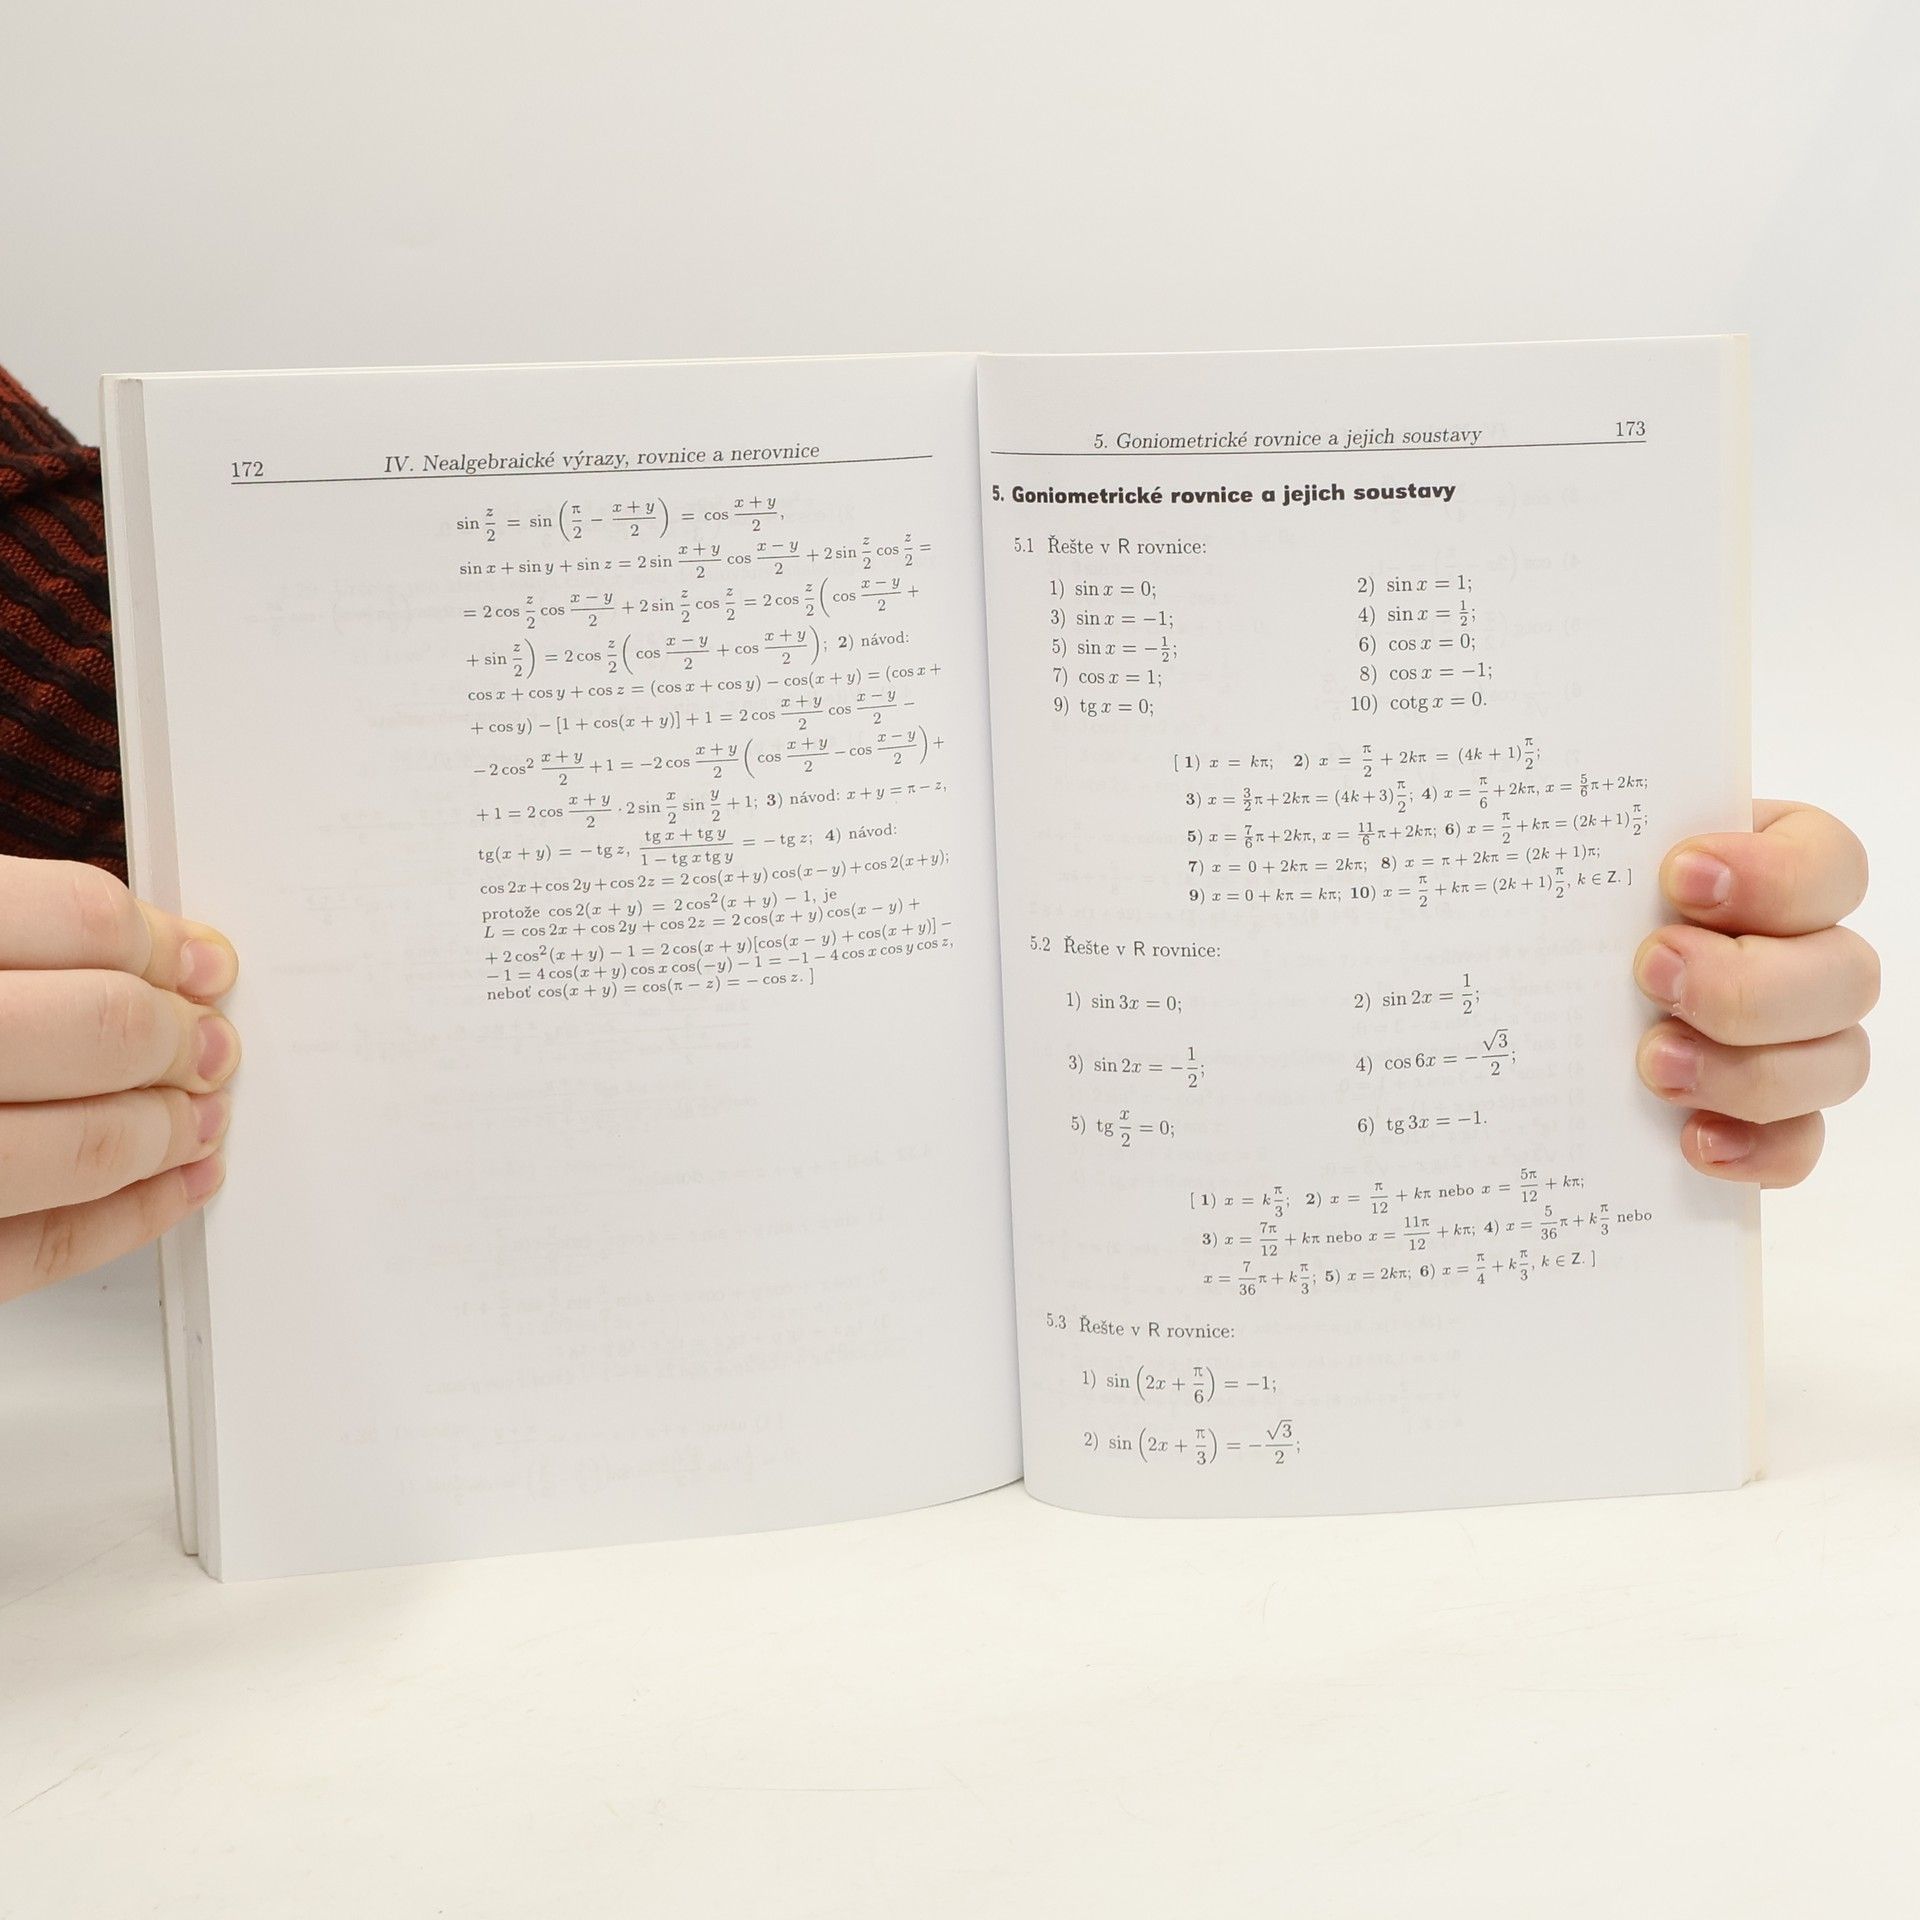 172 IV. Nealgebraické výrazy, rovnice a nerovnice
sin z/2 = sin (π/2 − (x + y)/2) = cos (x + y)/2,
sin x + sin y + sin z = 2 sin (x + y)/2 cos (x − y)/2 + 2 sin z/2 cos z/2 =
= 2 cos z/2 cos (x − y)/2 + 2 sin z/2 cos z/2 = 2 cos z/2 (cos (x − y)/2 +
+ sin z/2) = 2 cos z/2 (cos (x − y)/2 + cos (x + y)/2); 2) návod:
cos x + cos y + cos z = (cos x + cos y) − cos(x + y) = (cos x +
+ cos y) − [1 + cos(x + y)] + 1 = 2 cos (x + y)/2 cos (x − y)/2 −
− 2 cos² (x + y)/2 + 1 = −2 cos (x + y)/2 (cos (x + y)/2 − cos (x − y)/2) +
+ 1 = 2 cos (x + y)/2 · 2 sin x/2 sin y/2 + 1; 3) návod: x + y = π − z,
tg(x + y) = − tg z, (tg x + tg y)/(1 − tg x tg y) = − tg z; 4) návod:
cos 2x + cos 2y + cos 2z = 2 cos(x + y) cos(x − y) + cos 2(x + y);
protože cos 2(x + y) = 2 cos²(x + y) − 1, je
L = cos 2x + cos 2y + cos 2z = 2 cos(x + y) cos(x − y) +
+ 2 cos²(x + y) − 1 = 2 cos(x + y)[cos(x − y) + cos(x + y)] −
− 1 = 4 cos(x + y) cos x cos(−y) − 1 = −1 − 4 cos x cos y cos z,
neboť cos(x + y) = cos(π − z) = − cos z. ]
5. Goniometrické rovnice a jejich soustavy 173
5. Goniometrické rovnice a jejich soustavy
5.1 Řešte v R rovnice:
1) sin x = 0; 2) sin x = 1;
3) sin x = −1; 4) sin x = 1/2;
5) sin x = −1/2; 6) cos x = 0;
7) cos x = 1; 8) cos x = −1;
9) tg x = 0; 10) cotg x = 0.
[ 1) x = kπ; 2) x = π/2 + 2kπ = (4k + 1)π/2;
3) x = 3/2π + 2kπ = (4k + 3)π/2; 4) x = π/6 + 2kπ, x = 5/6π + 2kπ;
5) x = 7/6π + 2kπ, x = 11/6π + 2kπ; 6) x = π/2 + kπ = (2k + 1)π/2;
7) x = 0 + 2kπ = 2kπ; 8) x = π + 2kπ = (2k + 1)π;
9) x = 0 + kπ = kπ; 10) x = π/2 + kπ = (2k + 1)π/2, k ∈ Z. ]
5.2 Řešte v R rovnice:
1) sin 3x = 0; 2) sin 2x = 1/2;
3) sin 2x = −1/2; 4) cos 6x = −√3/2;
5) tg x/2 = 0; 6) tg 3x = −1.
[ 1) x = kπ/3; 2) x = π/12 + kπ nebo x = 5π/12 + kπ;
3) x = 7π/12 + kπ nebo x = 11π/12 + kπ; 4) x = 5/36π + kπ/3 nebo
x = 7/36π + kπ/3; 5) x = 2kπ; 6) x = π/4 + kπ/3, k ∈ Z. ]
5.3 Řešte v R rovnice:
1) sin (2x + π/6) = −1;
2) sin (2x + π/3) = −√3/2;